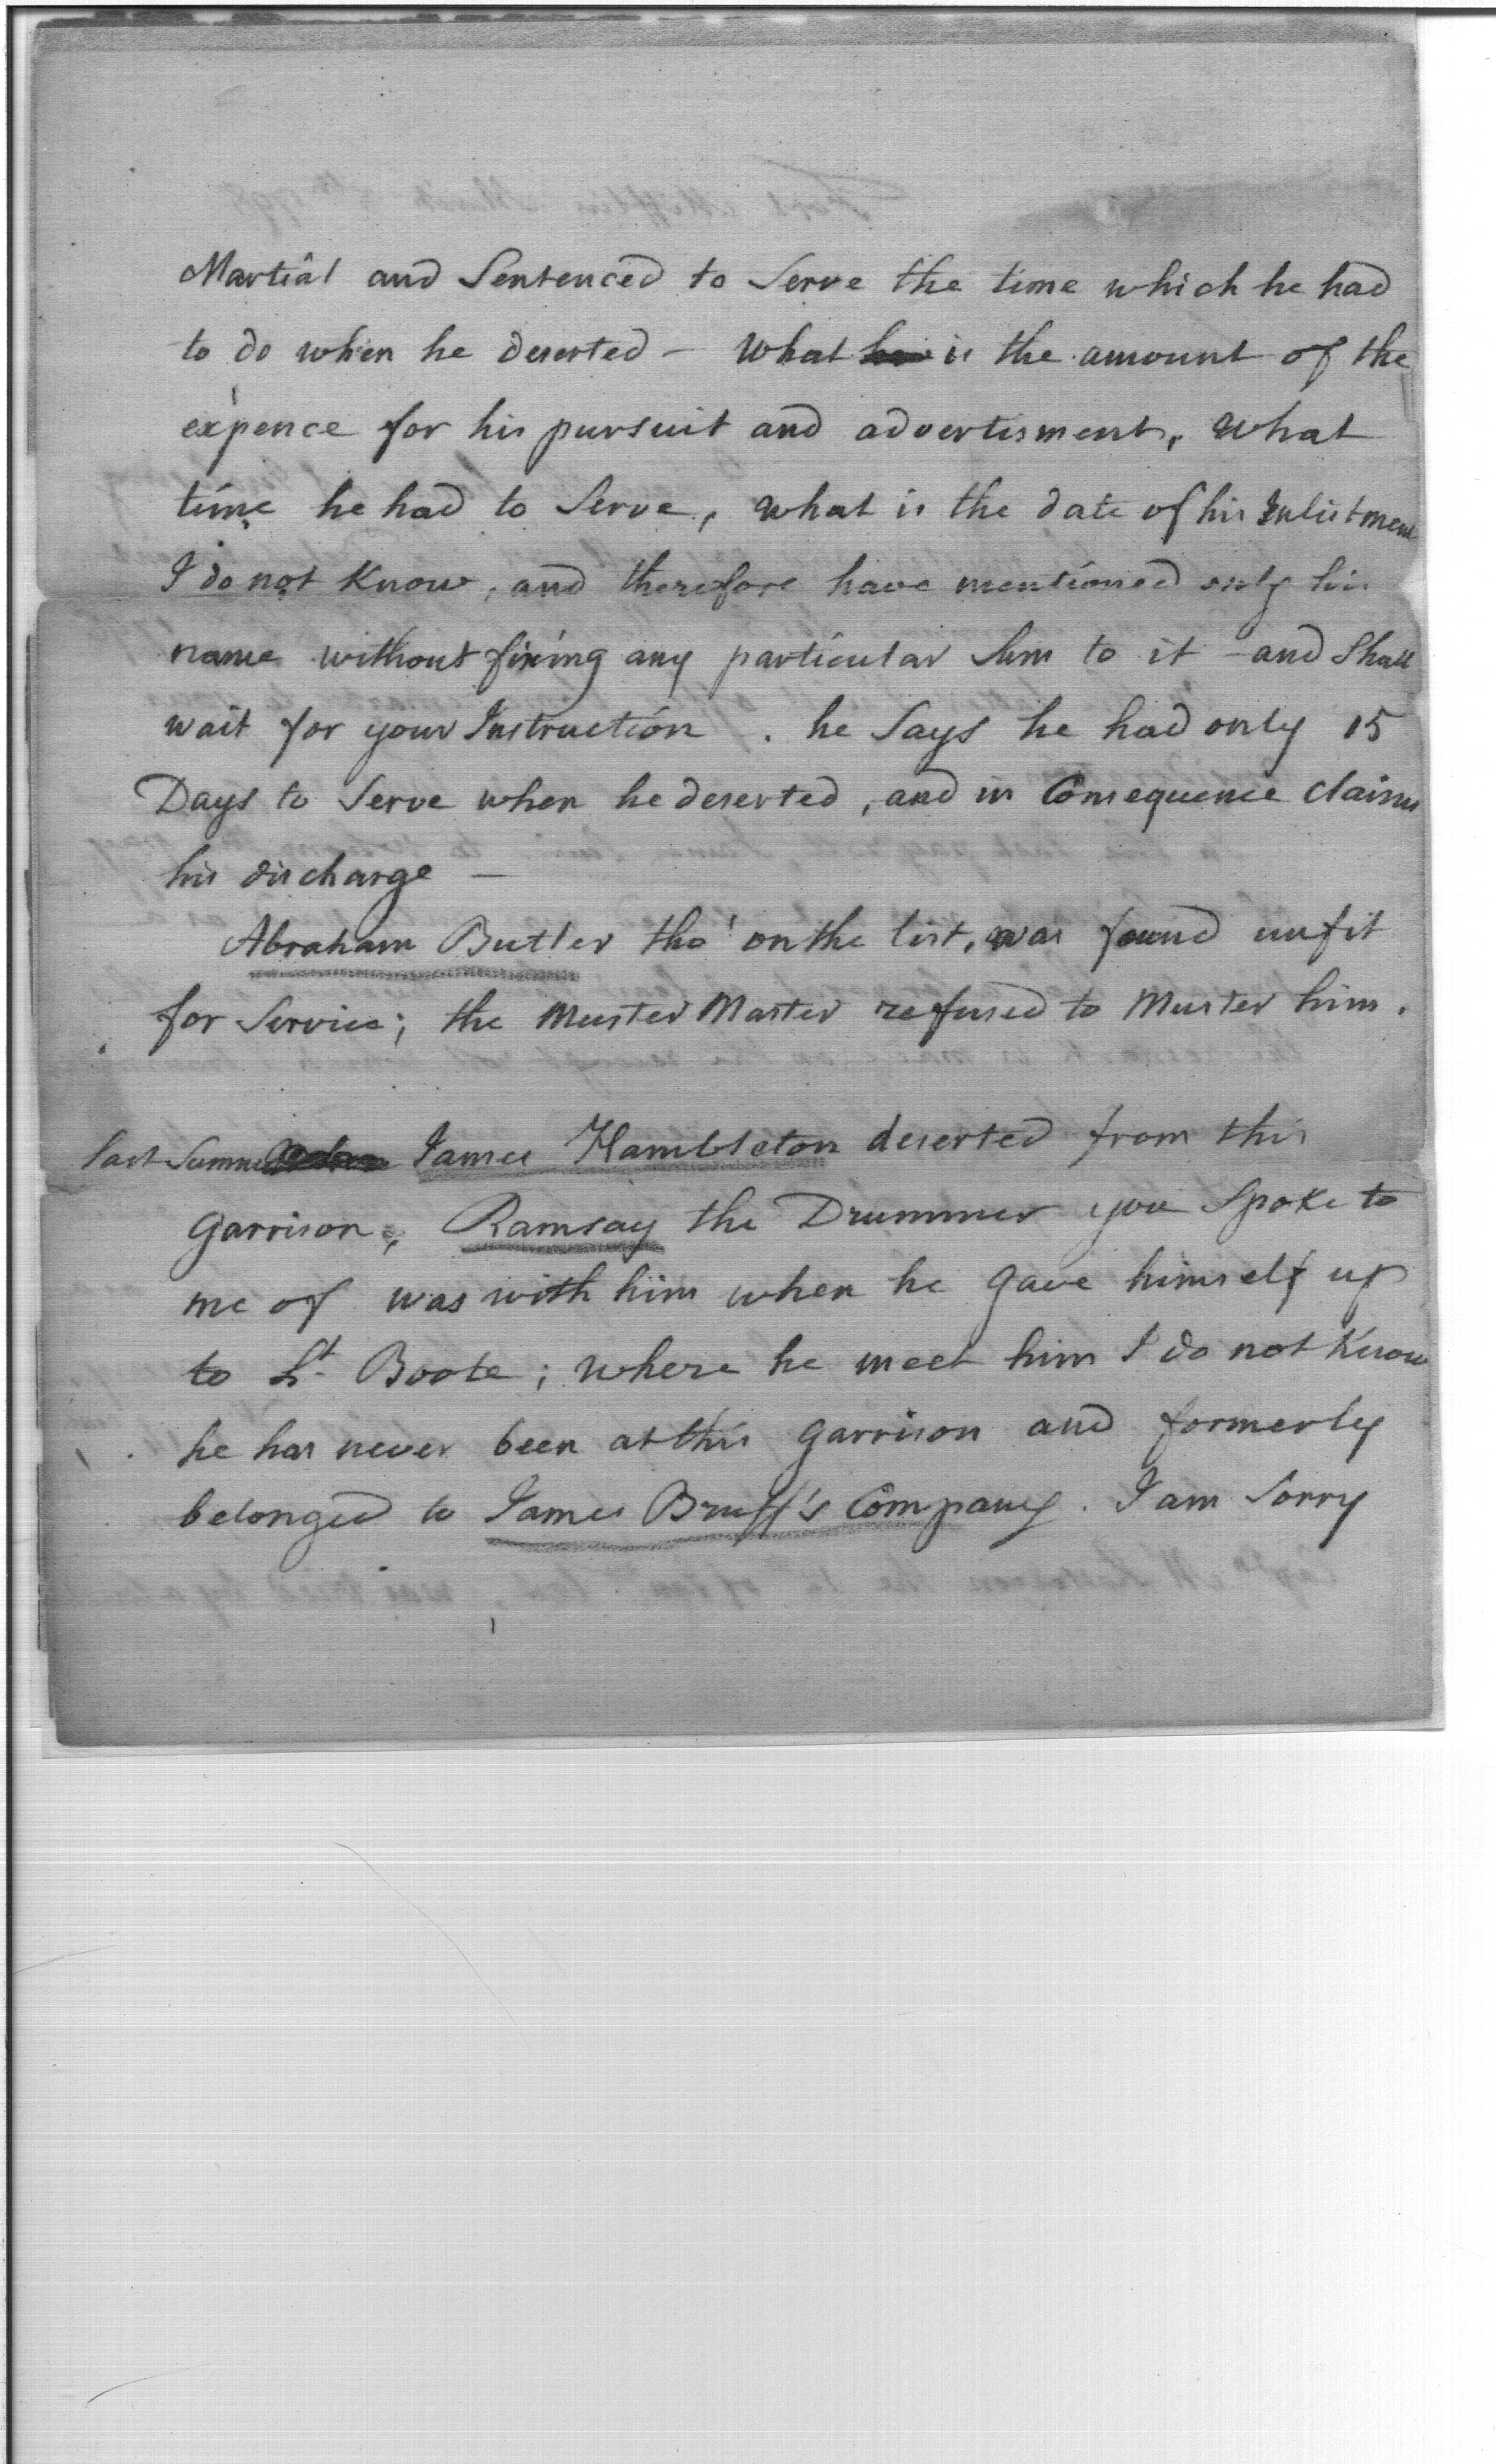 Martial and Sentenced to Serve the time which he had
to do when he deserted - What is the amount of the
expence for his pursuit and advertisment, What
time he had to Serve, what is the date of his Inlistment
I do not Know, and therefore have mentioned only his
name without fixing any particular Sum to it - and Shall
wait for your Instruction . he Says he had only 15
Days to Serve when he deserted, and in Consequence claims
his discharge —
Abraham Butler tho' on the list, was found unfit
for Service; the Muster Master refused to Muster him.
last Summer James Hambleton deserted from this
Garrison, Ramsay the Drummer you Spoke to
me of was with him when he gave himself up
to Lt. Boote; where he meet him I do not Know
he has never been at this garrison and formerly
belonged to James Bruff's Company. I am Sorry